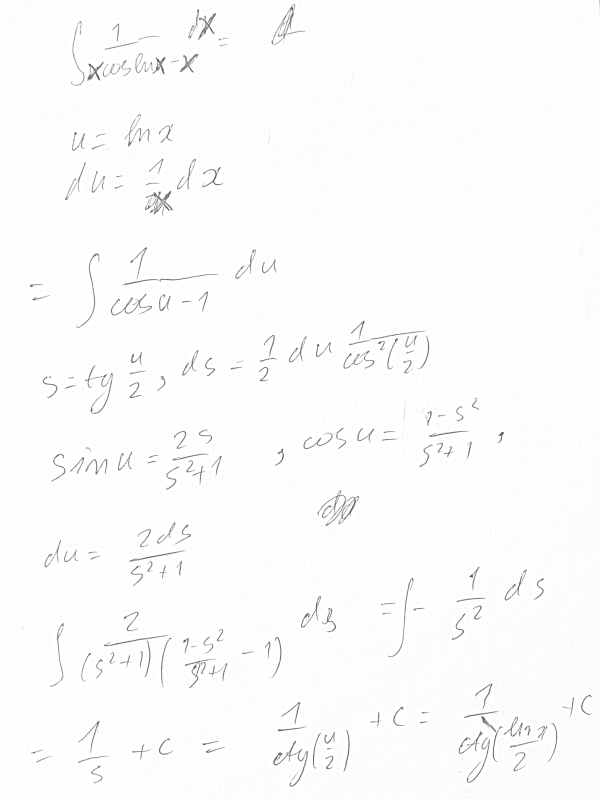 ∫ 1/(x cos ln x − x) dx =
u = ln x
du = 1/x dx
= ∫ 1/(cos u − 1) du
s = tg u/2, ds = 1/2 du 1/cos²(u/2)
sin u = 2s/(s²+1), cos u = (1−s²)/(s²+1),
du = 2ds/(s²+1)
∫ 2/((s²+1)((1−s²)/(s²+1) − 1)) ds = ∫ − 1/s² ds
= 1/s + C = 1/ctg(u/2) + C = 1/ctg(ln x/2) + C